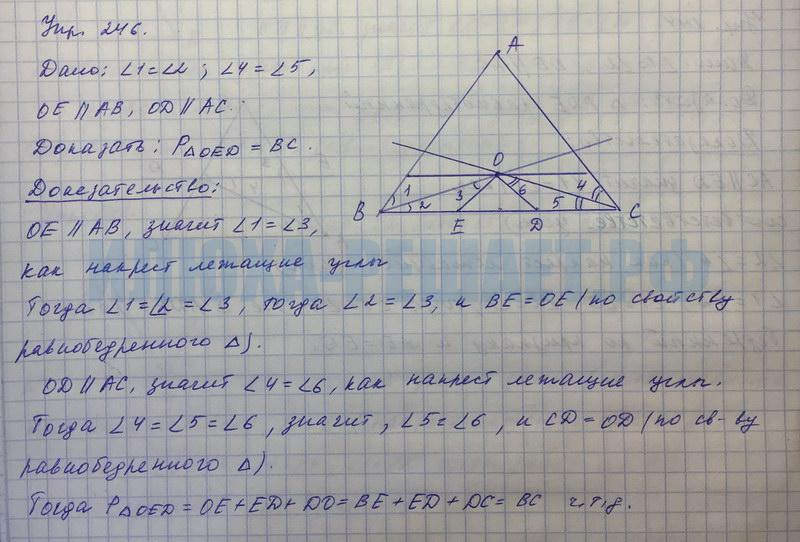 Упр. 246.
Дано: ∠1=∠2 ; ∠4=∠5,
OE ∥ AB, OD ∥ AC.
Доказать: P△OED = BC.
Доказательство:
OE ∥ AB, значит ∠1=∠3,
как накрест лежащие углы
Тогда ∠1=∠2 =∠3, тогда ∠2 =∠3, и BE=OE (по свойству
равнобедренного △).
OD ∥ AC, значит ∠4=∠6, как накрест лежащие углы.
Тогда ∠4=∠5=∠6, значит, ∠5=∠6, и CD=OD (по св-ву
равнобедренного △).
Тогда P△OED = OE+ED+DO= BE+ED+DC= BC ч.т.д.
A
O
1
4
6
4
B
2
3
5
C
E
D